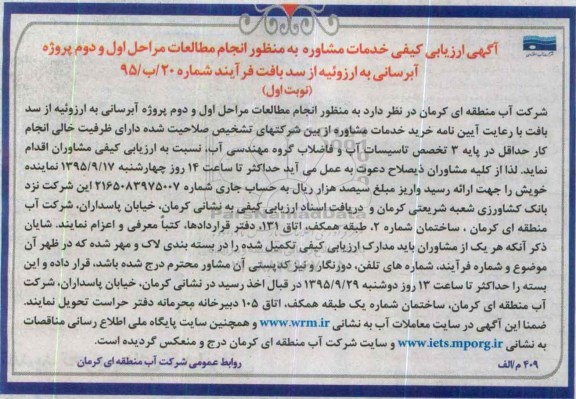 آگهی ارزیابی کیفی خدمات مشاوره به منظور انجام مطالعات مراحل اول و دوم پروژه
آبرسانی به ارزوئیه از سد بافت فرآیند شماره ۲۰/ب/۹۵
(نوبت اول)
شرکت آب منطقه ای کرمان در نظر دارد به منظور انجام مطالعات مراحل اول و دوم پروژه آبرسانی به ارزوئیه از سد
بافت با رعایت آیین نامه خرید خدمات مشاوره از بین شرکتهای تشخیص صلاحیت شده دارای ظرفیت خالی انجام
کار حداقل در پایه ۳ تخصص تاسیسات آب و فاضلاب گروه مهندسی آب، نسبت به ارزیابی کیفی مشاوران اقدام
نماید. لذا از کلیه مشاوران ذیصلاح دعوت به عمل می آید حداکثر تا ساعت ۱۴ روز چهارشنبه ۱۳۹۵/۹/۱۷ نماینده
خویش را جهت ارائه رسید واریز مبلغ سیصد هزار ریال به حساب جاری شماره ۲۱۶۵۰۸۳۹۷۵۰۰۷ این شرکت نزد
بانک کشاورزی شعبه شریعتی کرمان و دریافت اسناد ارزیابی کیفی به نشانی کرمان، خیابان پاسداران، شرکت آب
منطقه ای کرمان ، ساختمان شماره ۲، طبقه همکف، اتاق ۱۳۱، دفتر قراردادها، کتباً معرفی و اعزام نمایند. شایان
ذکر آنکه هر یک از مشاوران باید مدارک ارزیابی کیفی تکمیل شده را در بسته بندی لاک و مهر شده که در ظهر آن
موضوع و شماره فرآیند، شماره های تلفن، دورنگار و نیز کدپستی آن مشاور محترم درج شده باشد، قرار داده و این
بسته را حداکثر تا ساعت ۱۳ روز دوشنبه ۱۳۹۵/۹/۲۹ در قبال اخذ رسید در نشانی کرمان، خیابان پاسداران، شرکت
آب منطقه ای کرمان، ساختمان شماره یک طبقه همکف، اتاق ۱۰۵ دبیرخانه محرمانه دفتر حراست تحویل نمایند.
ضمنا این آگهی در سایت معاملات آب به نشانی www.wrm.ir و همچنین سایت پایگاه ملی اطلاع رسانی مناقصات
به نشانی www.iets.mporg.ir و سایت شرکت آب منطقه ای کرمان درج و منعکس گردیده است.
۴۰۹ م/الف
روابط عمومی شرکت آب منطقه ای کرمان
ParsNamadData